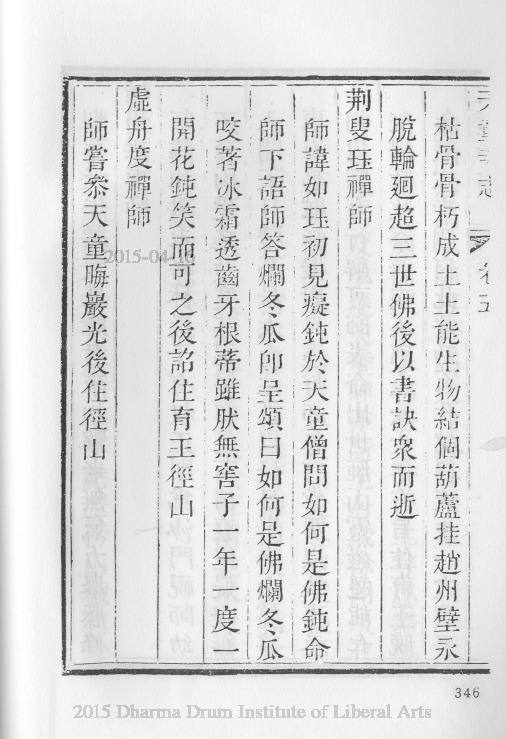 天童寺志 卷五
枯骨骨朽成土土能生物結個葫蘆挂趙州壁永
脫輪廻超三世佛後以書訣衆而逝
荆叟珏禪師
師諱如珏初見癡鈍於天童僧問如何是佛鈍命
師下語師答爛冬瓜卽呈頌曰如何是佛爛冬瓜
咬著冰霜透齒牙根蒂雖肰無窖子一年一度一
開花鈍笑而可之後詔住育王徑山
虛舟度禪師
師嘗叅天童晦巖光後住徑山
2015-04-16
346
2015 Dharma Drum Institute of Liberal Arts